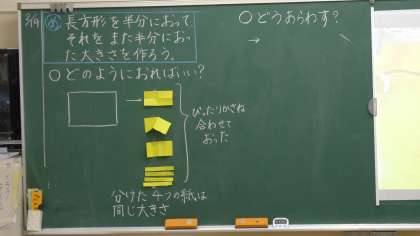 2/19 め 長方形を半分におって
それをまた半分におっ
た大きさを作ろう。
○どのようにおればいい?
ぴったりかさね
合わせて
おった
分けた4つの紙は
同じ大きさ
○どうあらわす?